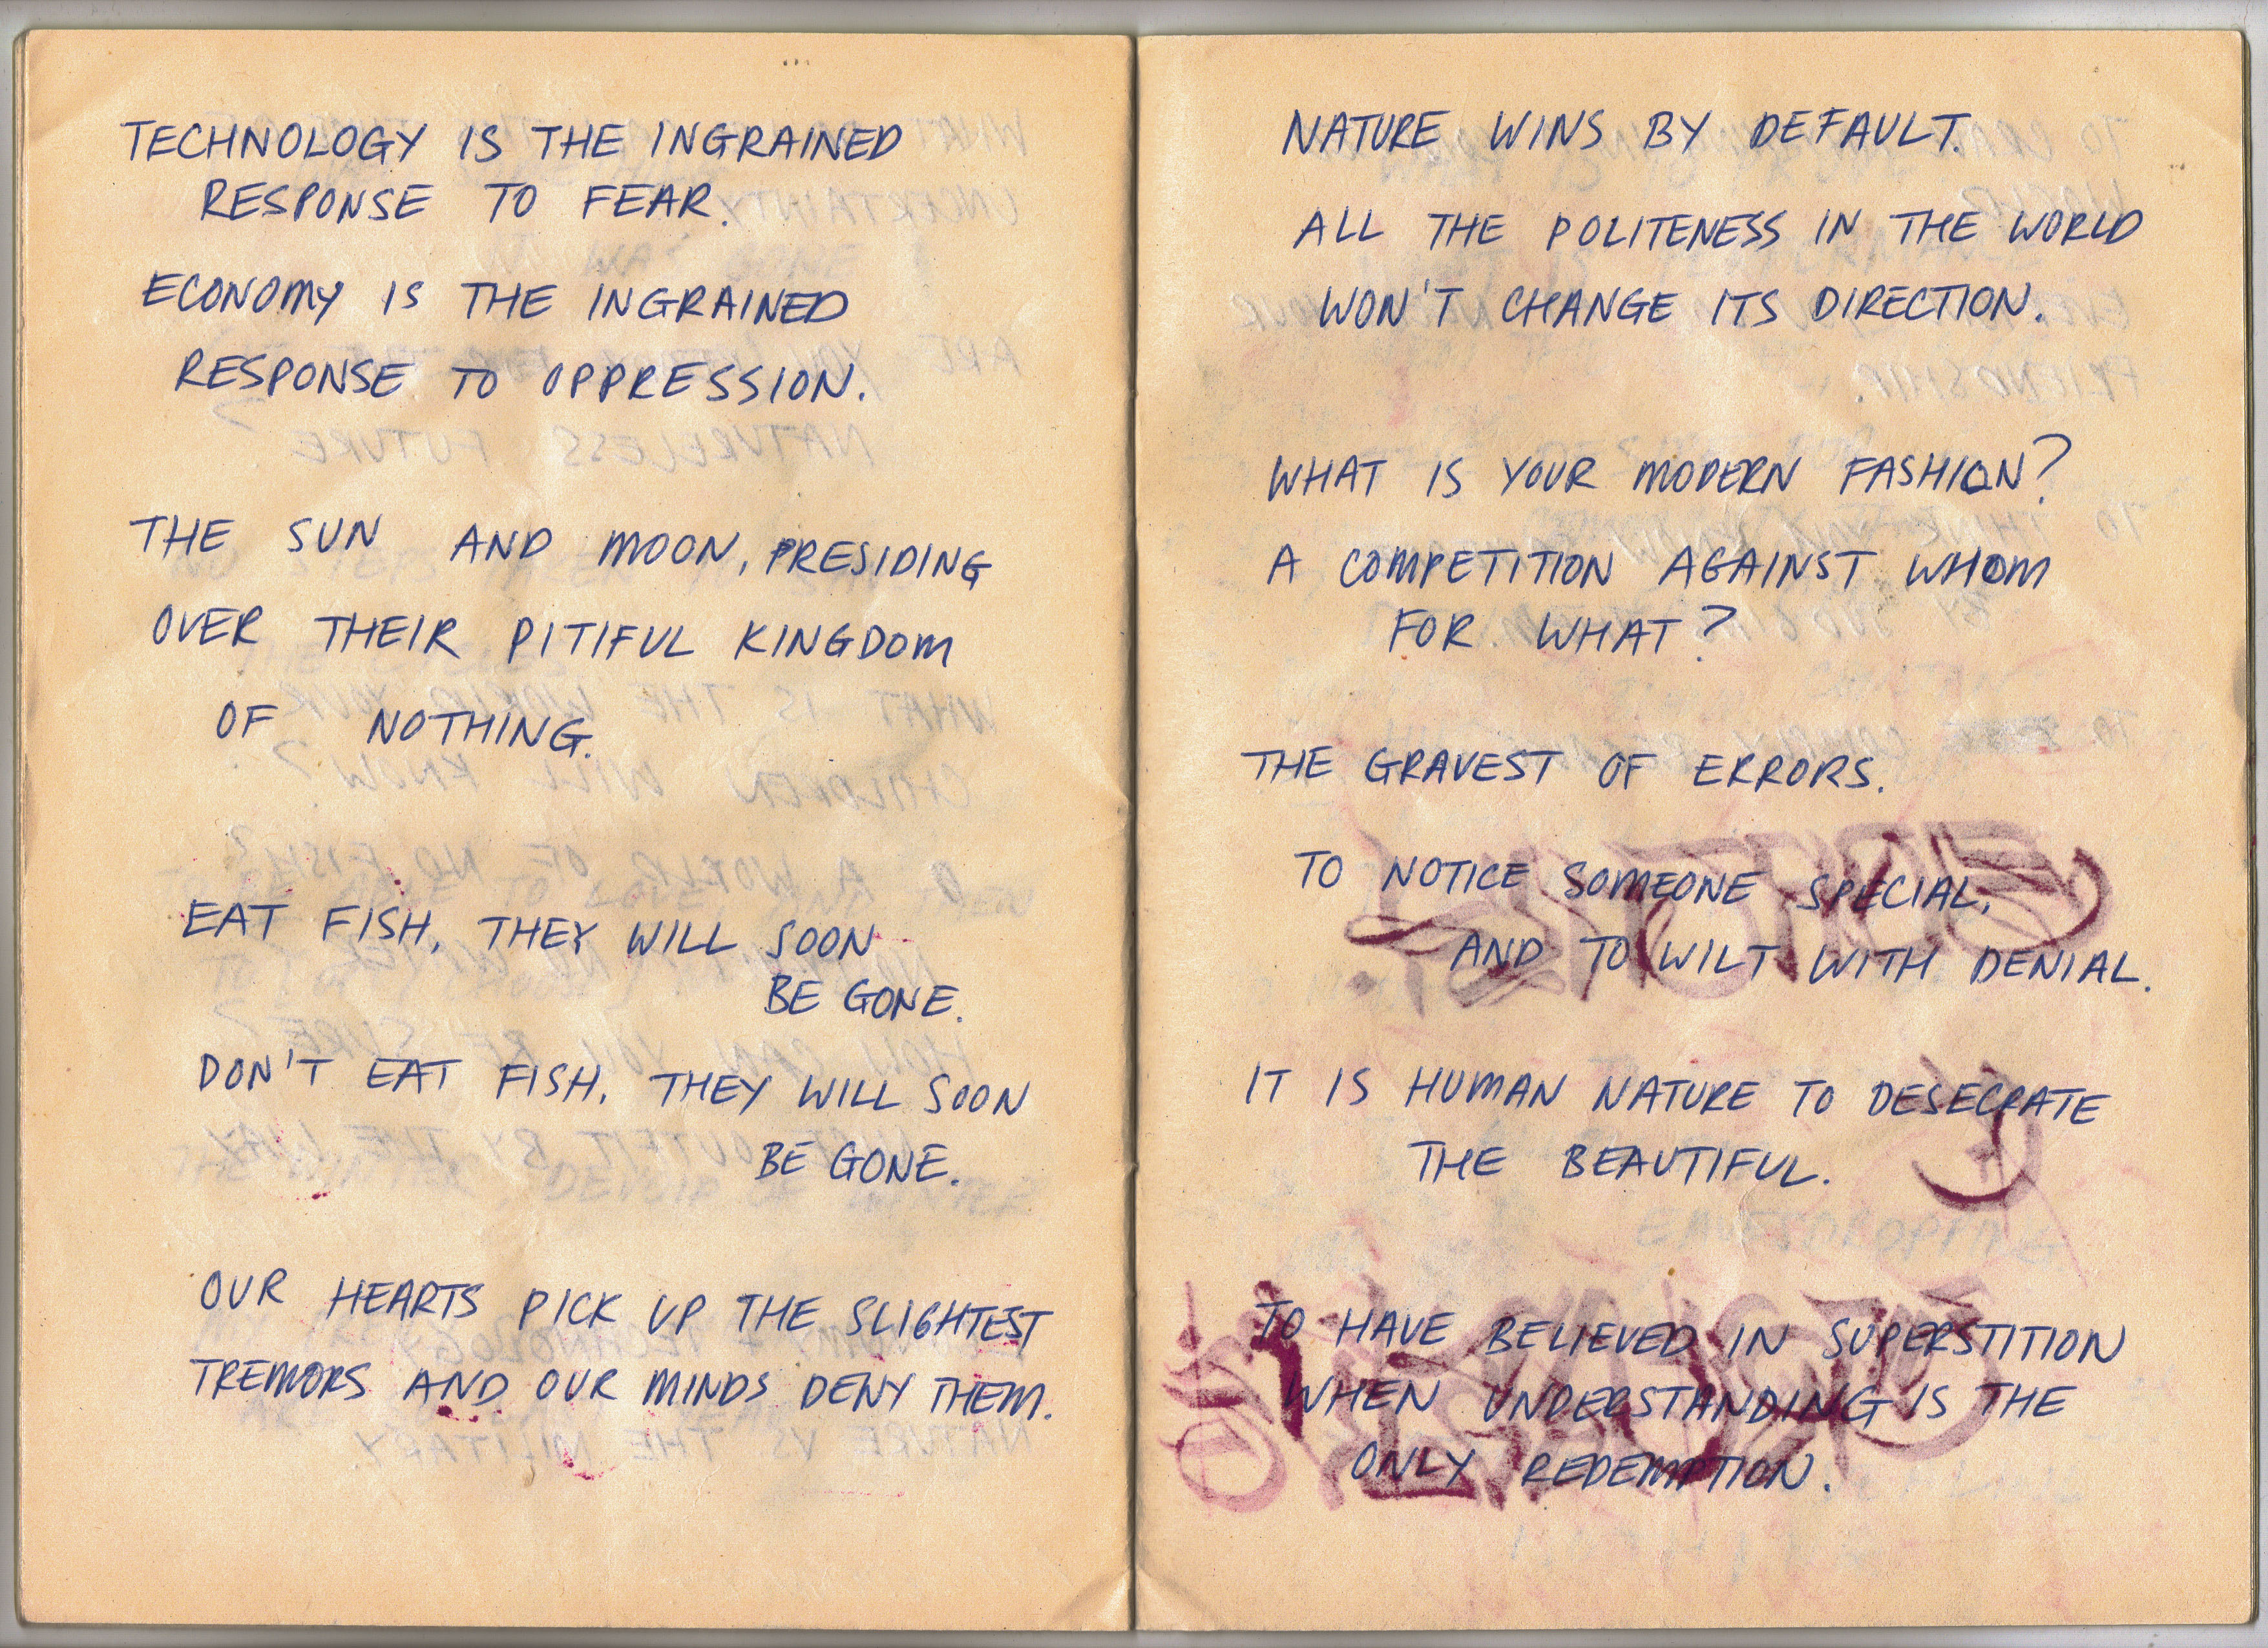 TECHNOLOGY IS THE INGRAINED
RESPONSE TO FEAR.
ECONOMY IS THE INGRAINED
RESPONSE TO OPPRESSION.
THE SUN AND MOON, PRESIDING
OVER THEIR PITIFUL KINGDOM
OF NOTHING.
EAT FISH, THEY WILL SOON
BE GONE.
DON'T EAT FISH. THEY WILL SOON
BE GONE.
OUR HEARTS PICK UP THE SLIGHTEST
TREMORS AND OUR MINDS DENY THEM.
NATURE WINS BY DEFAULT.
ALL THE POLITENESS IN THE WORLD
WON'T CHANGE ITS DIRECTION.
WHAT IS YOUR MODERN FASHION?
A COMPETITION AGAINST WHOM
FOR WHAT?
THE GRAVEST OF ERRORS.
TO NOTICE SOMEONE SPECIAL,
AND TO WILT WITH DENIAL.
IT IS HUMAN NATURE TO DESECRATE
THE BEAUTIFUL.
TO HAVE BELIEVED IN SUPERSTITION
WHEN UNDERSTANDING IS THE
ONLY REDEMPTION.